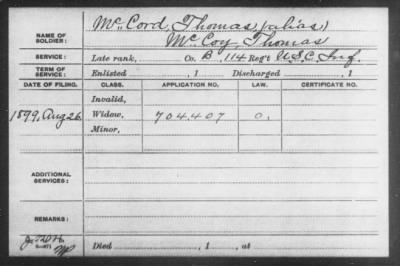 McCord, Thomas (alias)
NAME OF SOLDIER: McCoy, Thomas
SERVICE: Late rank, Co. B, 114 Reg't U.S.C. Inf.
TERM OF SERVICE: Enlisted , 1 Discharged , 1
DATE OF FILING. CLASS. APPLICATION NO. LAW. CERTIFICATE NO.
Invalid,
1899, Aug 26 Widow, 704407 O.
Minor,
ADDITIONAL SERVICES:
REMARKS:
Died , 1 , at